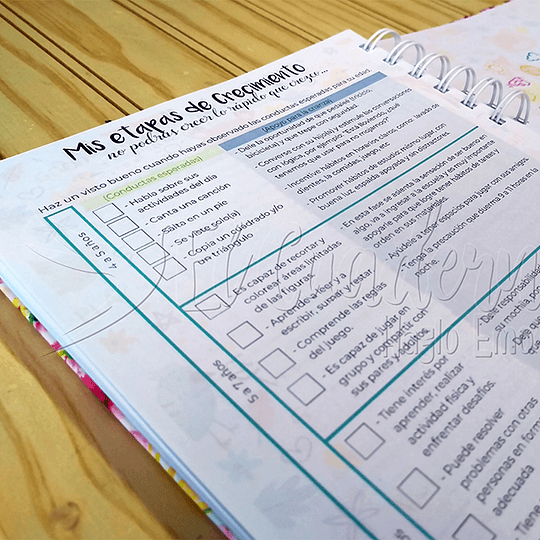 Mis etapas de Crecimiento
no podrás creer lo rápido que crezco...
Haz un visto bueno cuando hayas observado las conductas esperadas para su edad.
(Conductas esperadas)
(Apoyo para la crianza)
4 a 5 años
- Habla sobre sus
actividades del día
- Canta una canción
- Salta en un pie
- Se viste solo(a)
- Copia un cuadrado y/o
un triángulo
- Dele la oportunidad de que pedalee (triciclo,
bicicleta) y que trepe con seguridad.
- Converse con su hijo(a) y estimule las conversaciones
con lógica, por ejemplo, "Está lloviendo, ¿qué
tenemos que usar para no mojarnos?"
- Incentive hábitos en horarios claros, como: lavado de
dientes, la comida, juego, etc.
- Promover hábitos de estudio mismo lugar con
buena luz, utensilios para pintar y otros, horario.
5 a 7 años
- Es capaz de recortar y
colorear áreas limitadas
de las figuras
- Aprende a leer y a
escribir, sumar y restar.
- Comprende las reglas
del juego.
- Es capaz de jugar en
grupo y compartir con
sus pares y adultos.
- En esta fase se asienta la sensación de ser bueno en
algo, va a ingresar a la escuela y es muy importante
apoyarle para que logre tener hábitos de tareas y
orden en sus materiales.
- Ayúdele a tener espacios para jugar con los amigos.
- Tenga la precaución que duerma 9 a 11 horas en la
noche.
- Tiene interés por
aprender, realizar
actividad física y
enfrentar desafíos.
- Puede resolver
problemas con otras
personas en forma
adecuada
- Dele responsabilidad
su mochila,
- Dele
que
- De
Cuaderno
Hazlo Emo